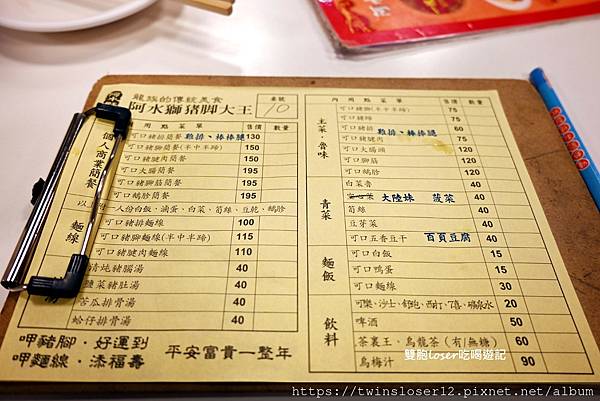 龍族的傳統美食
阿水獅豬腳大王
桌號 10
內用點菜單 售價 數量
個人商業簡餐
可口豬排簡餐 雞排、棒棒腿 130
可口豬腳簡餐(半中半蹄) 150
可口豬腱肉簡餐 150
可口大腸頭簡餐 195
可口豬腳筋簡餐 195
可口鵝胗簡餐 195
一人份白飯、滷蛋、白菜、筍絲、豆乾、鵝胗
麵線
可口豬排麵線 100
可口豬腳麵線(半中半蹄) 115
可口豬腱肉麵線 110
清燉豬腸湯 40
鹽菜豬肚湯 40
苦瓜排骨湯 40
蛤仔排骨湯 40
呷豬腳‧好運到
呷麵線‧添福壽
平安富貴一整年
內用點菜單 售價 數量
主菜‧魯味
可口豬腳(半中半蹄) 75
可口豬蹄 75
可口豬排 雞排、棒棒腿 60
可口豬腱肉 75
可口大腸頭 120
可口腳筋 120
可口鵝胗 120
白菜魯 40
青菜
大陸妹 菠菜 40
筍絲 40
豆芽菜 40
可口五香豆干 百頁豆腐 40
麵飯
可口白飯 15
可口鴨蛋 15
可口麵線 30
飲料
可樂、沙士、舒跑、西打、7喜、礦泉水 20
啤酒 50
茶裏王、烏龍茶(有/無糖) 60
烏梅汁 90
雙胞Loser吃喝遊記
https://twinsloser12.pixnet.net/album